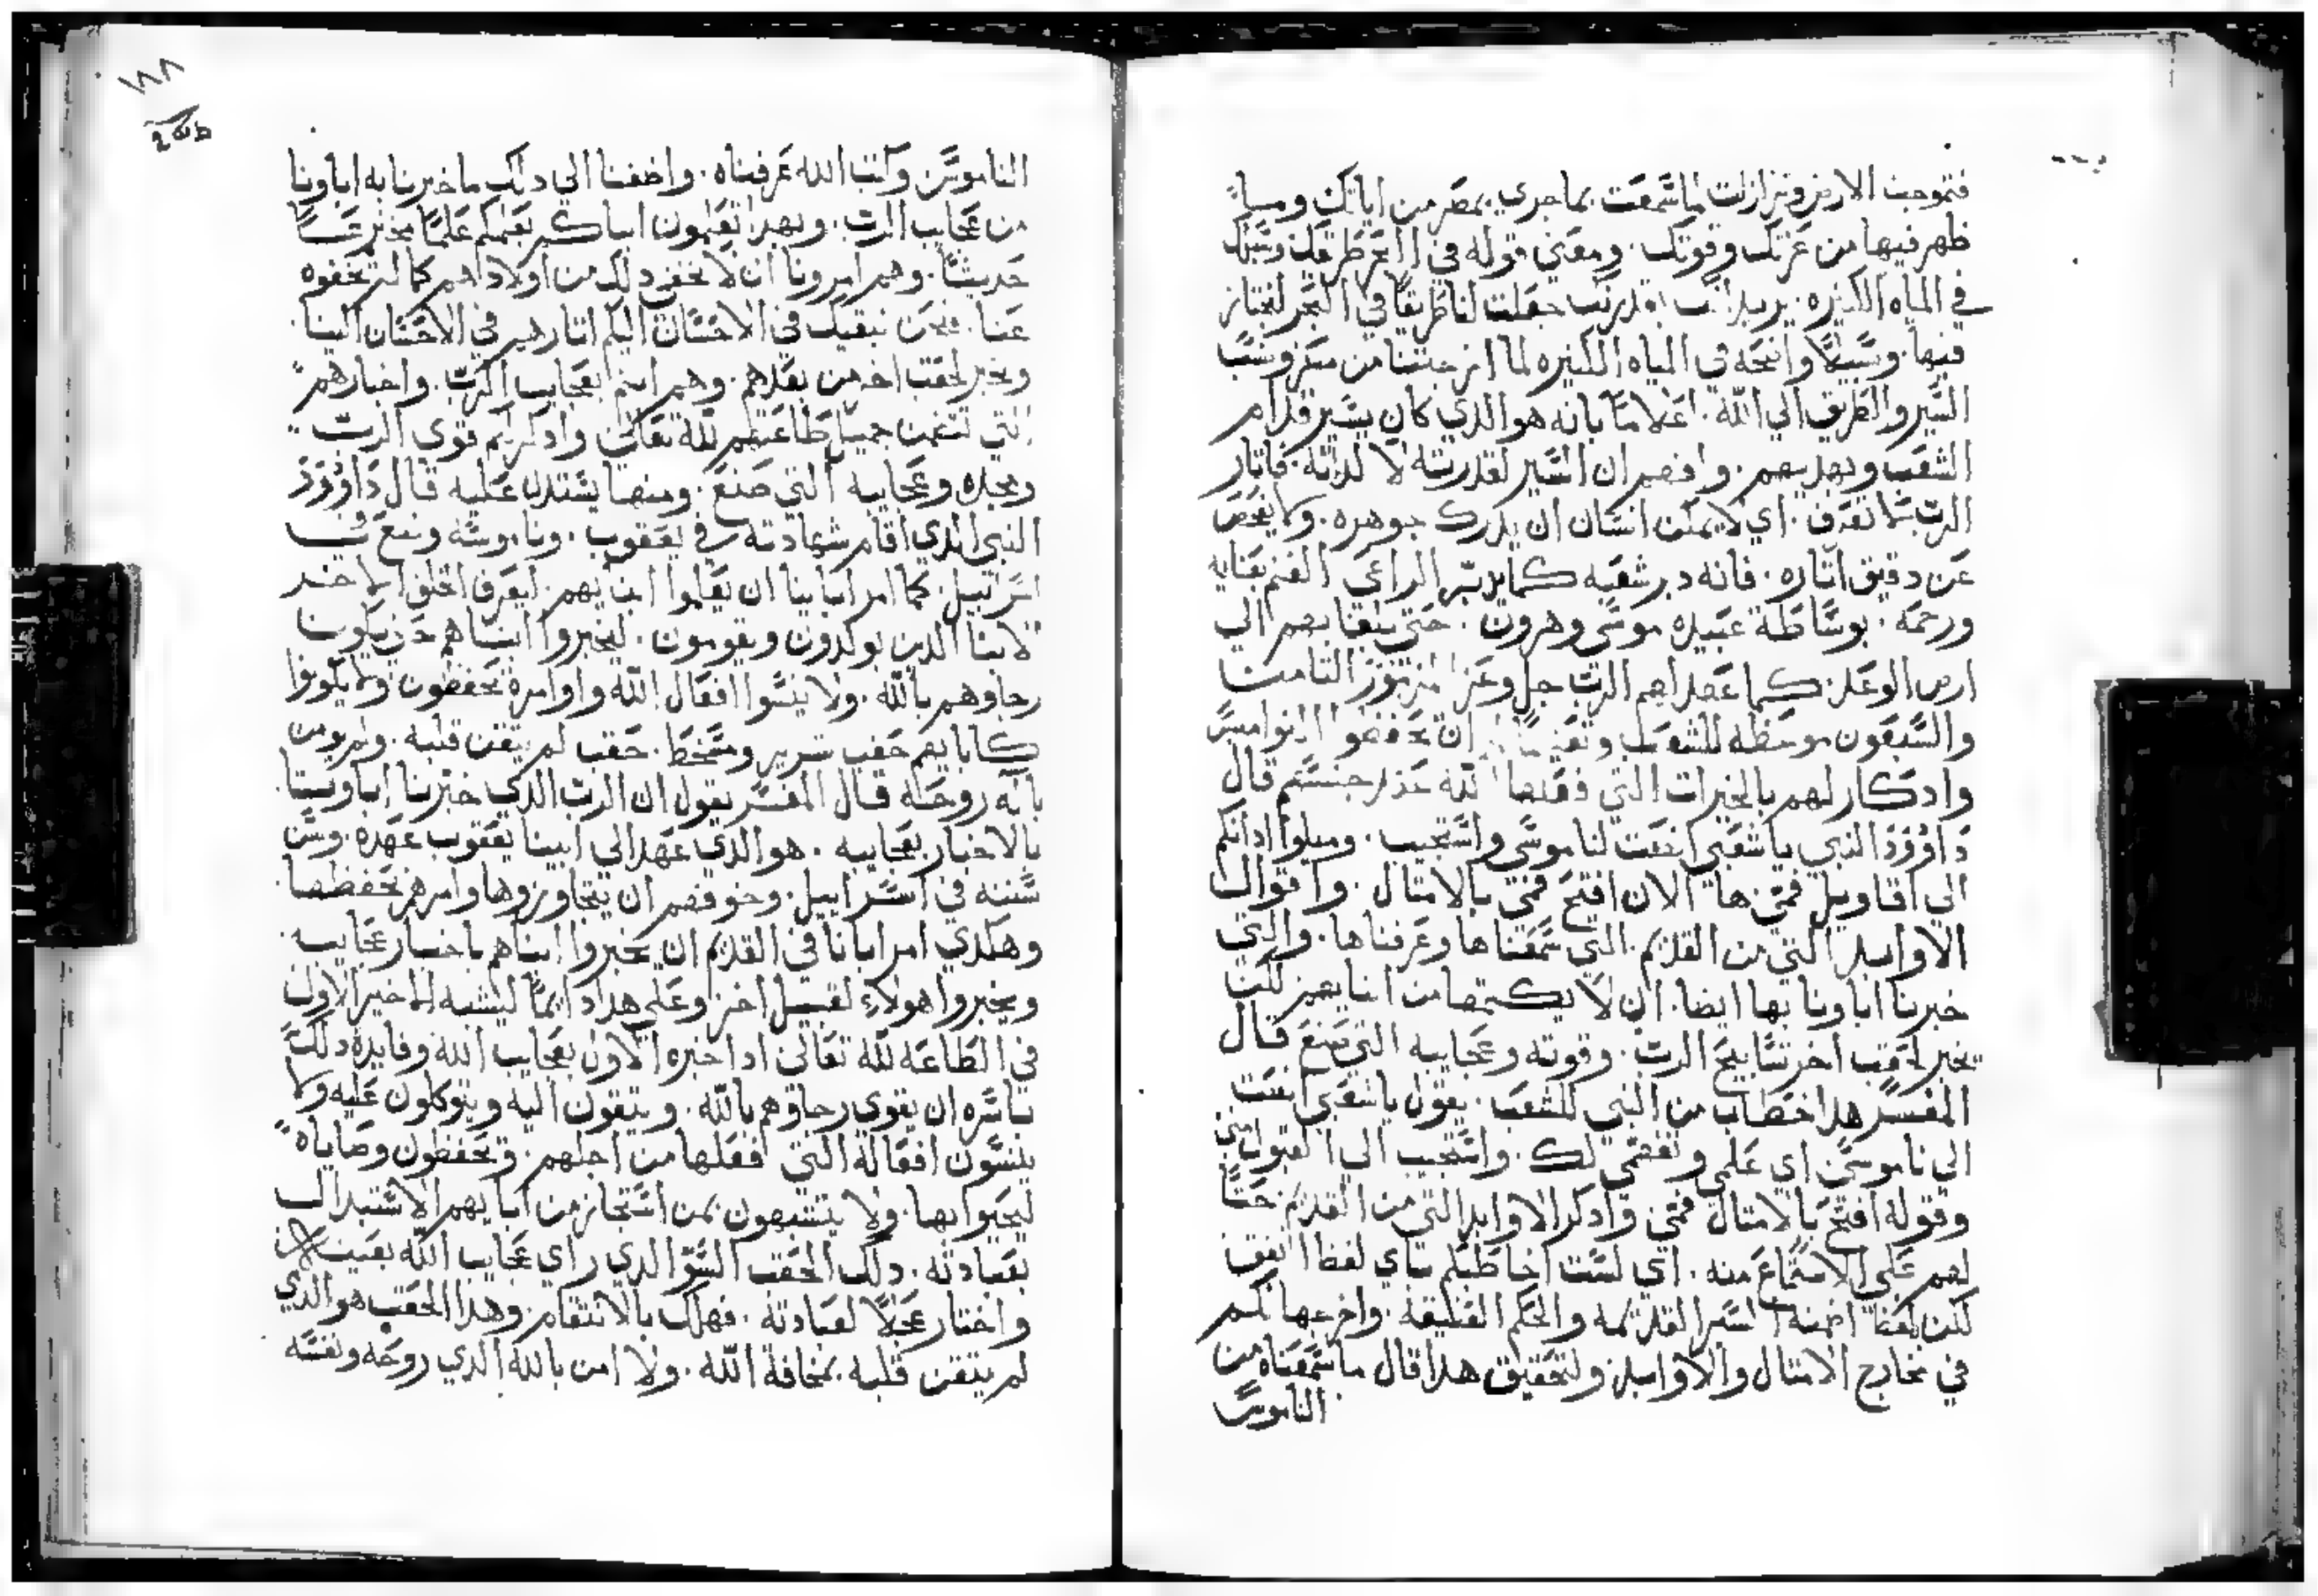 فتموجت الارض وتزلزلت لما سمعت بما جري بمصر من اياتك وما
ظهر فيها من عزتك وقوتك . ومعني قوله في البحر طريقك وسبلك
في المياه الكثيره . يريد انت بقدرتك جعلت لنا طريقا في البحر لنجتاز
فيها . وسبيلا واضحه في المياه الكثيره لما اخرجتنا من مصر ونسب
السير والطريق الي الله . اعلاما بانه هو الذي كان يسير قدام
الشعب ويهديهم . وافهم ان السير لقدرته لا لذاته . فاثار
الرب لا تعرف . اي لا يمكن انسان ان يدرك جوهره . ولا يفحص
عن دقيق اثاره . فانه دبر شعبه كما يدبر الراعي الغنم بعنايه
ورحمه . بوساطة عبيده موسي وهرون . حتي بلغا بهم الي
ارض الوعد . كما عهد لهم الرب جل وعز المزمور الثامن
والسبعون موعظه للشعب ان يحفظوا النواميس
وادكار لهم بالخيرات التي فعلها الله جنسهم قال
داوود النبي يا شعبي انصت لناموسي واستجيب . وميلوا ادانكم
الي اقاويل فمي ها الان افتح فمي بالامثال . واقول
الاوابد التي من القديم . التي سمعناها وعرفناها . والتي
خبرنا اباونا بها ايضا . ان لا يكتمها من ابنايهم لكن
يخبر لحقب اخر تسابيح الرب . وقوته وعجايبه التي صنع قال
المفسر هذا خطاب من النبي للشعب . يقول يا شعبي انصت
الي ناموسي اي علمي وتفهمي لك . واستجيب الي القبول مني
وقوله افتح بالامثال فمي وادكر الاوابد التي من القديم . حثا
لهم علي الاستماع منه . اي لست اخاطبكم باي لفظ اتفق
لكن لفظا اضمنه السير القديمه والحكم العتيقه . واخرجها لكم
في مخارج الامثال والاوابد . ولتحقيق هذا قال ما سمعناه من
الناموس
الناموس وكتب الله عرفناه . واضفنا الي دلك ما خبرنا به اباونا
من عجايب الرب . وبهدا تعلمون ابناكم بعلمكم علما مخترعا
حديثا . وهم امرونا ان لا نخفي دلك من اولادهم كما لم يخفوه
عنا . فنحن نبقيك في الاحسان اليكم اثارهم في الاحسان الينا .
ويخبر لحقب اخر من بعدهم . وهم ابنهم بعجايب الرب . واخبارهم
التي تتضمن جميل طاعتهم لله تعالي وادكركم قوي الرب
ومجده وعجايبه التي صنع . ومنها يستدل عليه قال داوود
النبي الذي اقام شهادته في يعقوب . وناموسه وضع في
اسراييل . كما امر اباينا ان يعلموا ابنايهم . ليعرف الخلق الاخر
الابنا الدين يولدون ويقومون . ليخبروا ابناهم حتي يكون
رجاوهم بالله . ولا ينسوا افعال الله واوامره يحفظون ولا يكونوا
كابايهم حقب شرير ومسخط . حقب لم يتقن قلبه . ولم يومن
بالله روحه قال المفسر يقول ان الرب الذي خبرنا اباونا
بالاخبار بعجايبه . هو الذي عهد الي ابينا يعقوب عهده . وسن
سننه في اسراييل . وخوفهم ان يتجاوزوها وامرهم بحفظها .
وهكدي امر ابانا في القديم ان يخبروا ابناهم باخبار عجايبه
ويخبروا هولاء لقبيل اخر وعلي هدا دايما ليشبه الاخير الاول
في الطاعه لله تعالي ادا خبره الاول بعجايب الله وفايدة دلك
باسره ان يقوي رجاوهم بالله . ويتقون اليه ويتوكلون عليه ولا
ينسون افعاله التي افعلها من اجلهم . ويحفظون وصاياه
ليحيوا بها . ولا يتشبهون بمن استجاز من ابايهم الاستبدال
بعبادته . دلك الحقب السو الدي راي عجايب الله بعينه
واختار عجلا لعبادته . فهلك بالانتقام . وهذا الحقب هو الدي
لم يتقن قلبه بمخافة الله . ولا امن بالله الدي روحه ونفسه